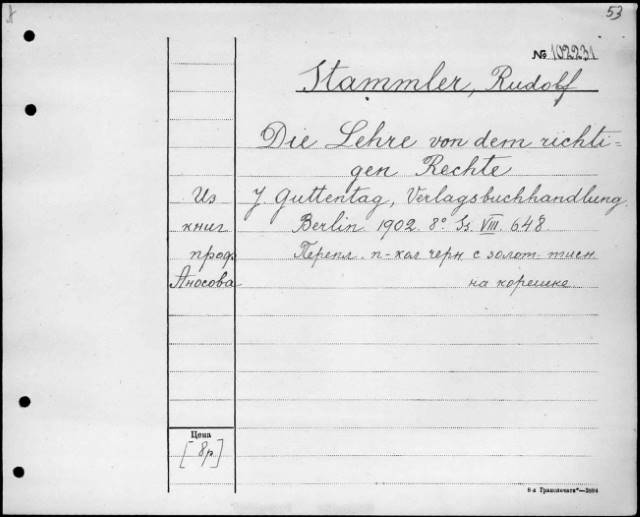 53
№ 102231
Stammler, Rudolf
Die Lehre von dem richti=
gen Rechte
Из J Guttentag, Verlagsbuchhandlung.
книг Berlin 1902. 8° Ss. VIII. 648.
проф. Перепл. п-кол черн с золот. тисн
Аносова на корешке.
Цена
[8р]